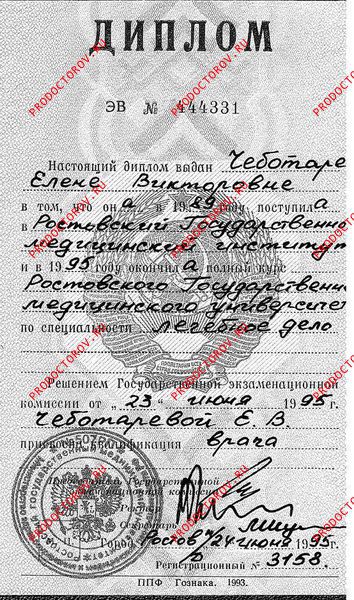 ДИПЛОМ
ЭВ № 444331
Настоящий диплом выдан Чеботаре
Елене Викторовне
в том, что она в 1989 году поступила
в Ростовский Государственн
медицинский институт
и в 1995 году окончила полный курс
Ростовского Государственно
медицинского университе
по специальности лечебное дело
Решением Государственной экзаменационной
комиссии от „23“ июня 1995 г.
Чеботаревой Е. В.
присвоена квалификация врача
Председатель Государственной
экзаменационной комиссии
Ректор
Секретарь
Город Ростов н/Д 24 июня 1995 г.
Регистрационный № 3158.
ППФ Гознака. 1993.
PRODOCTOROV.RU